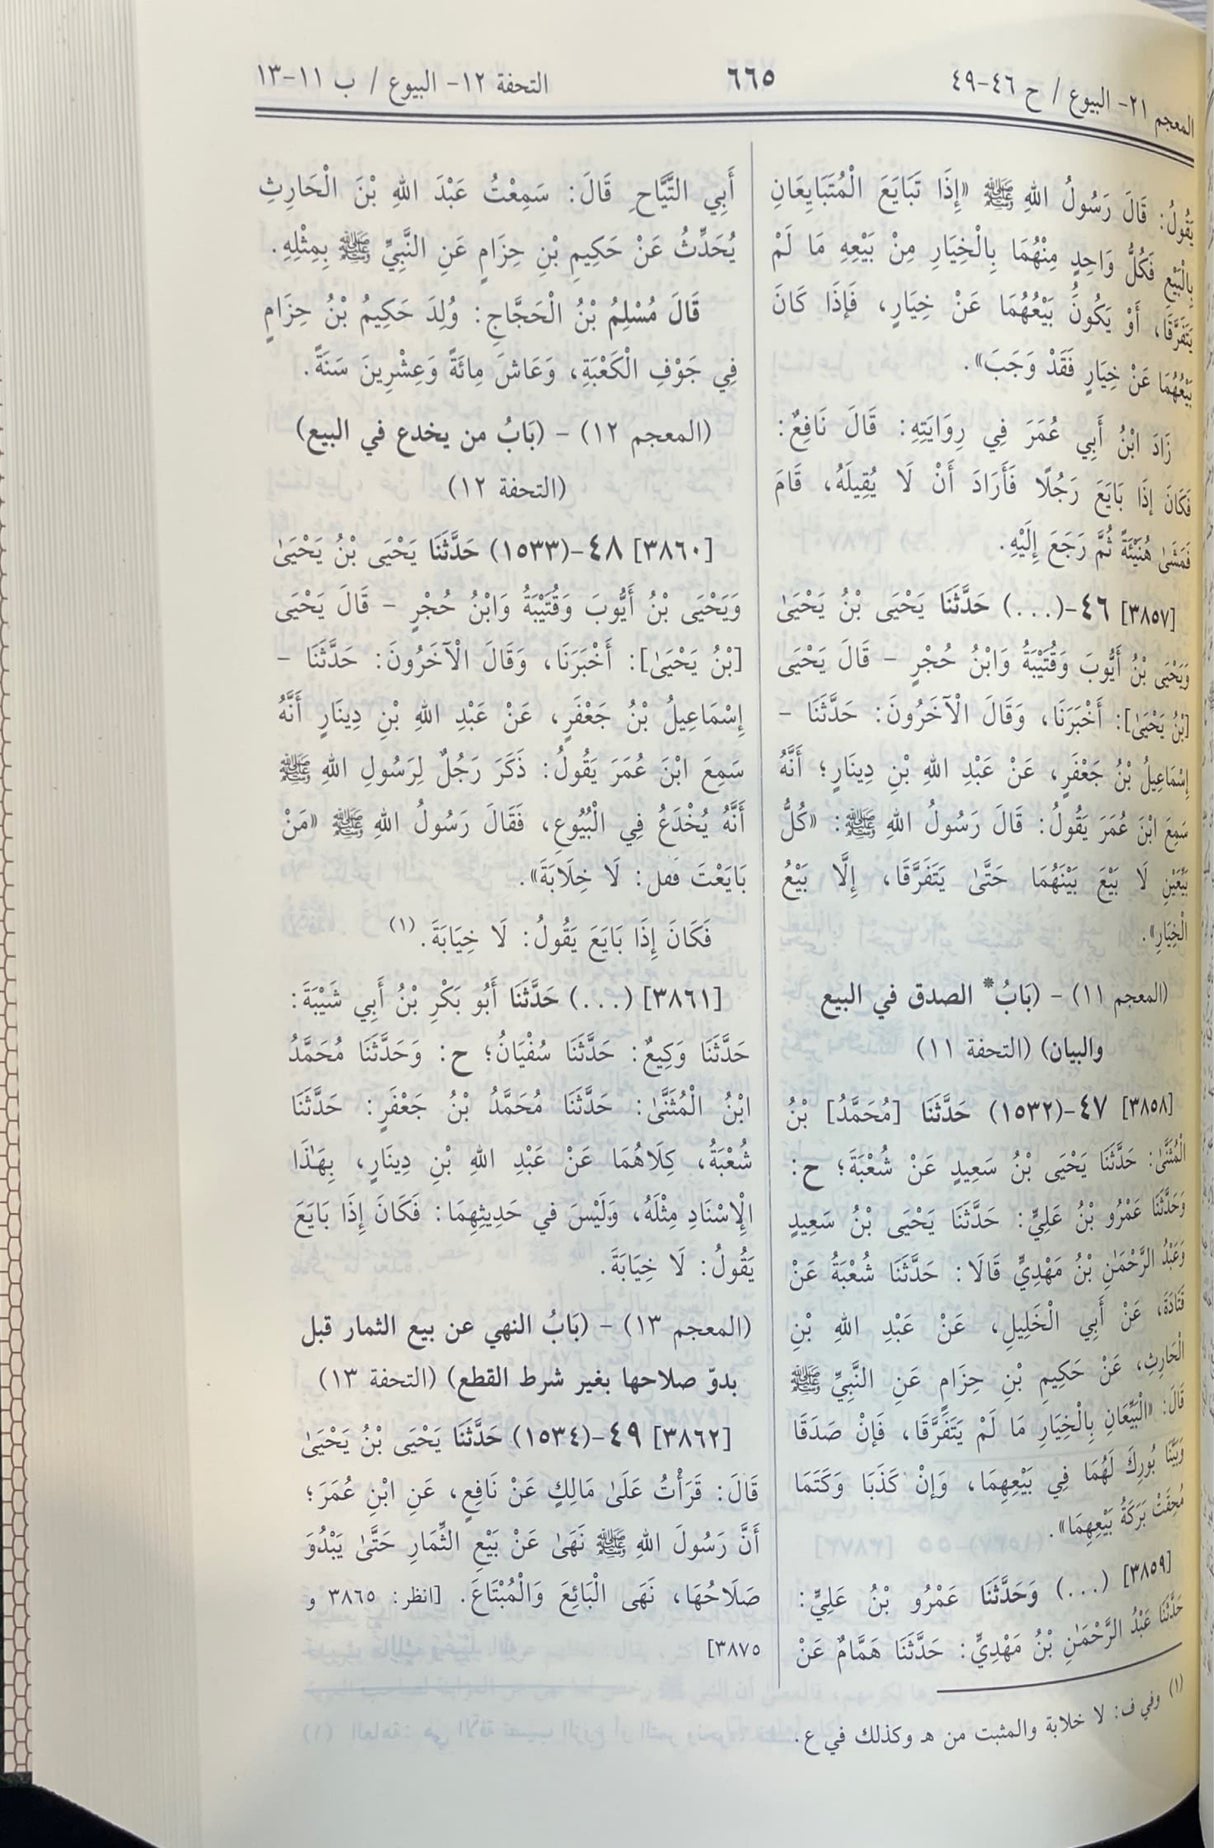 المعجم ٢١- البيوع / ح ٤٦-٤٩
٦٦٥
التحفة ١٢- البيوع / ب ١١-١٣
يَقُولُ: قَالَ رَسُولُ اللهِ ﷺ «إِذَا تَبَايَعَ الْمُتَبَايِعَانِ
بِالْبَيْعِ فَكُلُّ وَاحِدٍ مِنْهُمَا بِالْخِيَارِ مِنْ بَيْعِهِ مَا لَمْ
يَتَفَرَّقَا، أَوْ يَكُونُ بَيْعُهُمَا عَنْ خِيَارٍ، فَإِذَا كَانَ
بَيْعُهُمَا عَنْ خِيَارٍ فَقَدْ وَجَبَ».
زَادَ ابْنُ أَبِي عُمَرَ فِي رِوَايَتِهِ: قَالَ نَافِعٌ:
فَكَانَ إِذَا بَايَعَ رَجُلًا فَأَرَادَ أَنْ لَا يُقِيلَهُ، قَامَ
فَمَشَىٰ هُنَيَّةً ثُمَّ رَجَعَ إِلَيْهِ.
[٣٨٥٧] ٤٦-(...) حَدَّثَنَا يَحْيَى بْنُ يَحْيَىٰ
وَيَحْيَى بْنُ أَيُّوبَ وَقُتَيْبَةُ وَابْنُ حُجْرٍ – قَالَ يَحْيَى
[بْنُ يَحْيَىٰ]: أَخْبَرَنَا، وَقَالَ الْآخَرُونَ: حَدَّثَنَا –
إِسْمَاعِيلُ بْنُ جَعْفَرٍ، عَنْ عَبْدِ اللهِ بْنِ دِينَارٍ؛ أَنَّهُ
سَمِعَ ابْنَ عُمَرَ يَقُولُ: قَالَ رَسُولُ اللهِ ﷺ: «كُلُّ
بَيِّعَيْنِ لَا بَيْعَ بَيْنَهُمَا حَتَّىٰ يَتَفَرَّقَا، إِلَّا بَيْعُ
الْخِيَارِ».
(المعجم ١١) – (بَابُ* الصدق في البيع
والبيان) (التحفة ١١)
[٣٨٥٨] ٤٧-(١٥٣٢) حَدَّثَنَا [مُحَمَّدُ] بْنُ
الْمُثَنَّىٰ: حَدَّثَنَا يَحْيَى بْنُ سَعِيدٍ عَنْ شُعْبَةَ؛ ح:
وَحَدَّثَنَا عَمْرُو بْنُ عَلِيٍّ: حَدَّثَنَا يَحْيَى بْنُ سَعِيدٍ
وَعَبْدُ الرَّحْمَٰنِ بْنُ مَهْدِيٍّ قَالَا: حَدَّثَنَا شُعْبَةُ عَنْ
قَتَادَةَ، عَنْ أَبِي الْخَلِيلِ، عَنْ عَبْدِ اللهِ بْنِ
الْحَارِثِ، عَنْ حَكِيمِ بْنِ حِزَامٍ عَنِ النَّبِيِّ ﷺ
قَالَ: «الْبَيِّعَانِ بِالْخِيَارِ مَا لَمْ يَتَفَرَّقَا، فَإِنْ صَدَقَا
وَبَيَّنَا بُورِكَ لَهُمَا فِي بَيْعِهِمَا، وَإِنْ كَذَبَا وَكَتَمَا
مُحِقَتْ بَرَكَةُ بَيْعِهِمَا».
[٣٨٥٩] (...) وَحَدَّثَنَا عَمْرُو بْنُ عَلِيٍّ:
حَدَّثَنَا عَبْدُ الرَّحْمَٰنِ بْنُ مَهْدِيٍّ: حَدَّثَنَا هَمَّامٌ عَنْ
أَبِي التَّيَّاحِ قَالَ: سَمِعْتُ عَبْدَ اللهِ بْنَ الْحَارِثِ
يُحَدِّثُ عَنْ حَكِيمِ بْنِ حِزَامٍ عَنِ النَّبِيِّ ﷺ بِمِثْلِهِ.
قَالَ مُسْلِمُ بْنُ الْحَجَّاجِ: وُلِدَ حَكِيمُ بْنُ حِزَامٍ
فِي جَوْفِ الْكَعْبَةِ، وَعَاشَ مِائَةً وَعِشْرِينَ سَنَةً.
(المعجم ١٢) – (بَابُ من يخدع في البيع)
(التحفة ١٢)
[٣٨٦٠] ٤٨-(١٥٣٣) حَدَّثَنَا يَحْيَى بْنُ يَحْيَىٰ
وَيَحْيَى بْنُ أَيُّوبَ وَقُتَيْبَةُ وَابْنُ حُجْرٍ – قَالَ يَحْيَى
[بْنُ يَحْيَىٰ]: أَخْبَرَنَا، وَقَالَ الْآخَرُونَ: حَدَّثَنَا –
إِسْمَاعِيلُ بْنُ جَعْفَرٍ، عَنْ عَبْدِ اللهِ بْنِ دِينَارٍ أَنَّهُ
سَمِعَ ابْنَ عُمَرَ يَقُولُ: ذَكَرَ رَجُلٌ لِرَسُولِ اللهِ ﷺ
أَنَّهُ يُخْدَعُ فِي الْبُيُوعِ، فَقَالَ رَسُولُ اللهِ ﷺ «مَنْ
بَايَعْتَ فَقل: لَا خِلَابَةَ».
فَكَانَ إِذَا بَايَعَ يَقُولُ: لَا خِيَابَةَ. (١)
[٣٨٦١] (...) حَدَّثَنَا أَبُو بَكْرِ بْنُ أَبِي شَيْبَةَ:
حَدَّثَنَا وَكِيعٌ: حَدَّثَنَا سُفْيَانُ؛ ح: وَحَدَّثَنَا مُحَمَّدُ
ابْنُ الْمُثَنَّىٰ: حَدَّثَنَا مُحَمَّدُ بْنُ جَعْفَرٍ: حَدَّثَنَا
شُعْبَةُ، كِلَاهُمَا عَنْ عَبْدِ اللهِ بْنِ دِينَارٍ، بِهَٰذَا
الْإِسْنَادِ مِثْلَهُ، وَلَيْسَ فِي حَدِيثِهِمَا: فَكَانَ إِذَا بَايَعَ
يَقُولُ: لَا خِيَابَةَ.
(المعجم ١٣) – (بَابُ النهي عن بيع الثمار قبل
بدوّ صلاحها بغير شرط القطع) (التحفة ١٣)
[٣٨٦٢] ٤٩-(١٥٣٤) حَدَّثَنَا يَحْيَى بْنُ يَحْيَىٰ
قَالَ: قَرَأْتُ عَلَىٰ مَالِكٍ عَنْ نَافِعٍ، عَنِ ابْنِ عُمَرَ؛
أَنَّ رَسُولَ اللهِ ﷺ نَهَىٰ عَنْ بَيْعِ الثِّمَارِ حَتَّىٰ يَبْدُوَ
صَلَاحُهَا، نَهَى الْبَائِعَ وَالْمُبْتَاعَ. [انظر: ٣٨٦٥ و
٣٨٧٥]
(١) وفي ف: لا خلابة والمثبت من هـ وكذلك في ع.